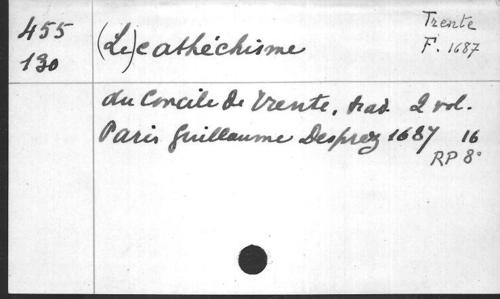 455
130
(Le) cathéchisme
Trente
F. 1687
du Concile de Trente, trad. 2 vol.
Paris Guillaume Desprez 1687 16
RP 8°